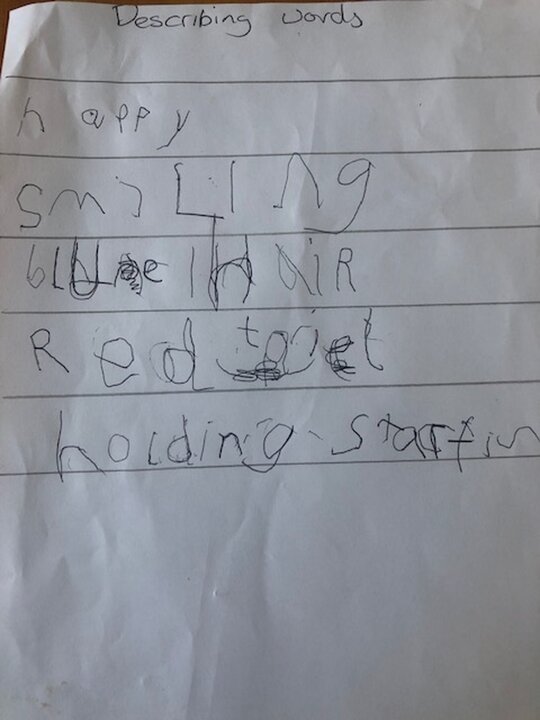 Describing words
happy
smiling
blue hair
Red
holding starfish